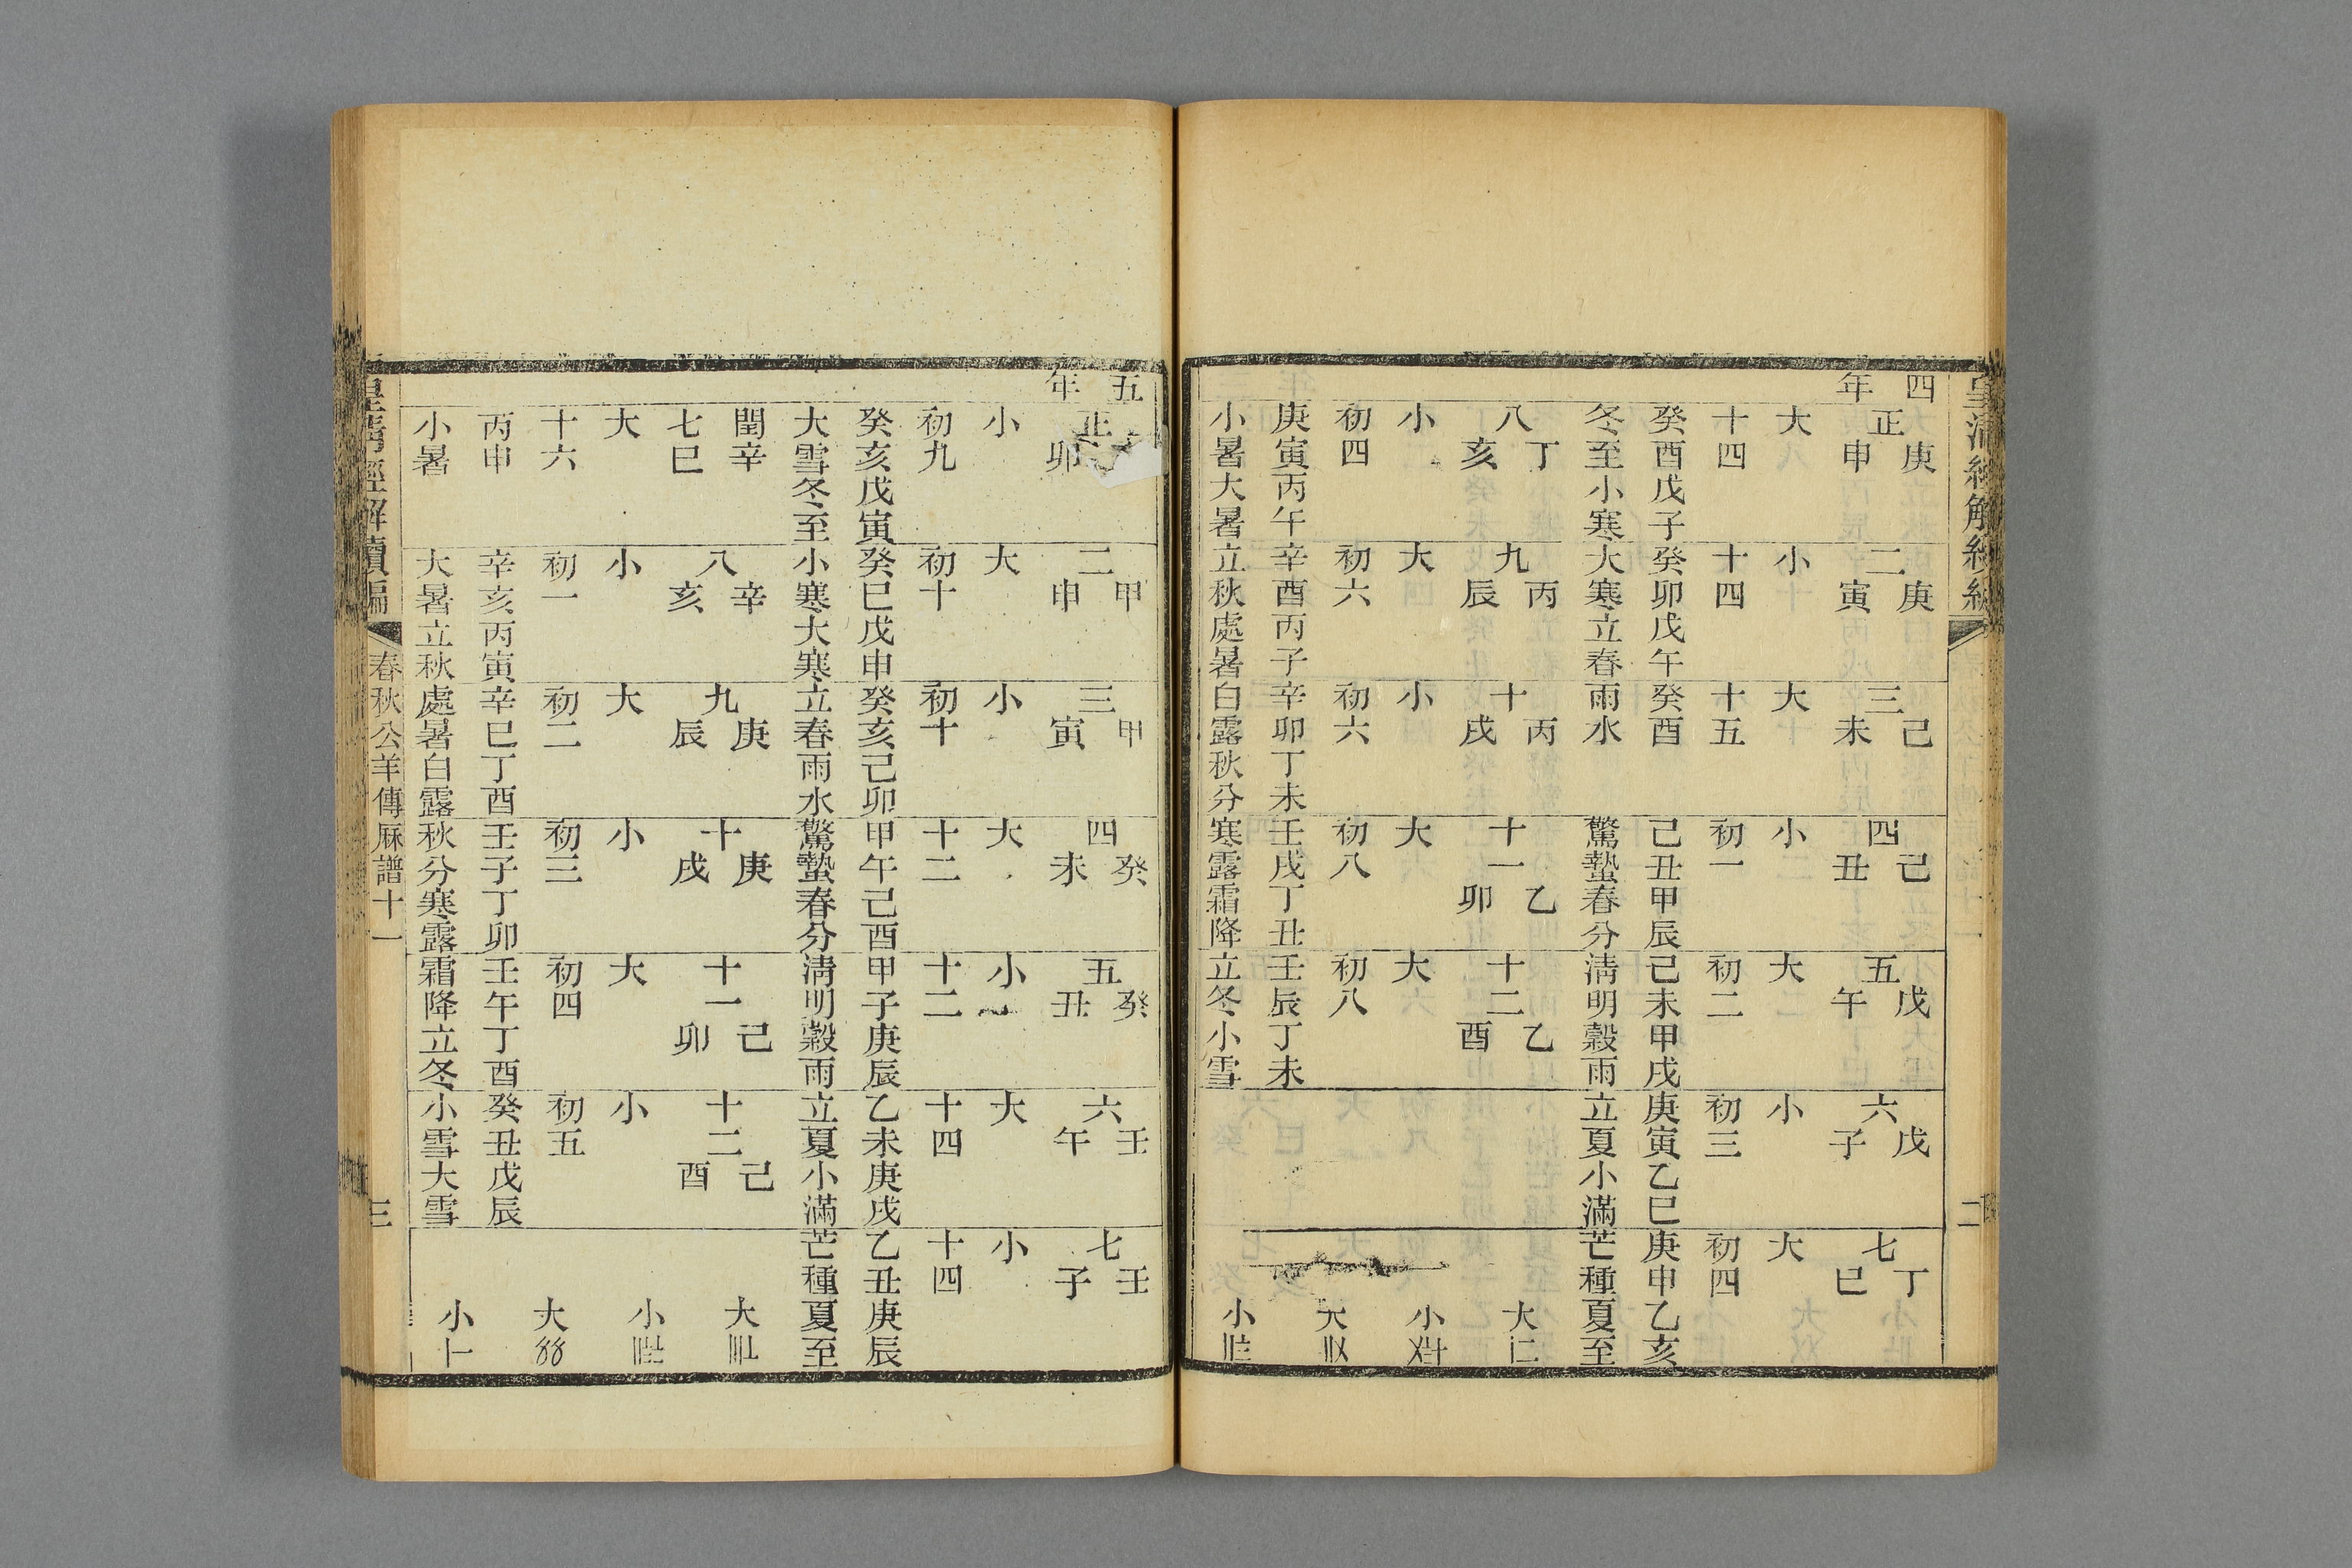 皇清經解續編
二
四年
正
庚申
大
十四
癸酉戊子
冬至小寒
二
庚寅
小
十四
癸卯戊午
大寒立春
三
己未
大
十五
癸酉
雨水
四
己丑
小
初一
己丑甲辰
驚蟄春分
五
戊午
大
初二
己未甲戌
清明穀雨
六
戊子
小
初三
庚寅乙巳
立夏小滿
七
丁巳
大
初四
庚申乙亥
芒種夏至
八
丁亥
小
初四
庚寅丙午
小暑大暑
九
丙辰
大
初六
辛酉丙子
立秋處暑
十
丙戌
小
初六
辛卯丁未
白露秋分
十一
乙卯
大
初八
壬戌丁丑
寒露霜降
十二
乙酉
大
初八
壬辰丁未
立冬小雪
大
小
大
小
五年
正
卯
小
初九
癸亥戊寅
大雪冬至
二
甲申
大
初十
癸巳戊申
小寒大寒
三
甲寅
小
初十
癸亥己卯
立春雨水
四
癸未
大
十二
甲午己酉
驚蟄春分
五
癸丑
小
十二
甲子庚辰
清明穀雨
六
壬午
大
十四
乙未庚戌
立夏小滿
七
壬子
小
十四
乙丑庚辰
芒種夏至
閏七
辛巳
大
十六
丙申
小暑
八
辛亥
小
初一
辛亥丙寅
大暑立秋
九
庚辰
大
初二
辛巳丁酉
處暑白露
十
庚戌
小
初三
壬子丁卯
秋分寒露
十一
己卯
大
初四
壬午丁酉
霜降立冬
十二
己酉
小
初五
癸丑戊辰
小雪大雪
大
小
大
小
皇清經解續編
春秋公羊傳厤譜十一
三